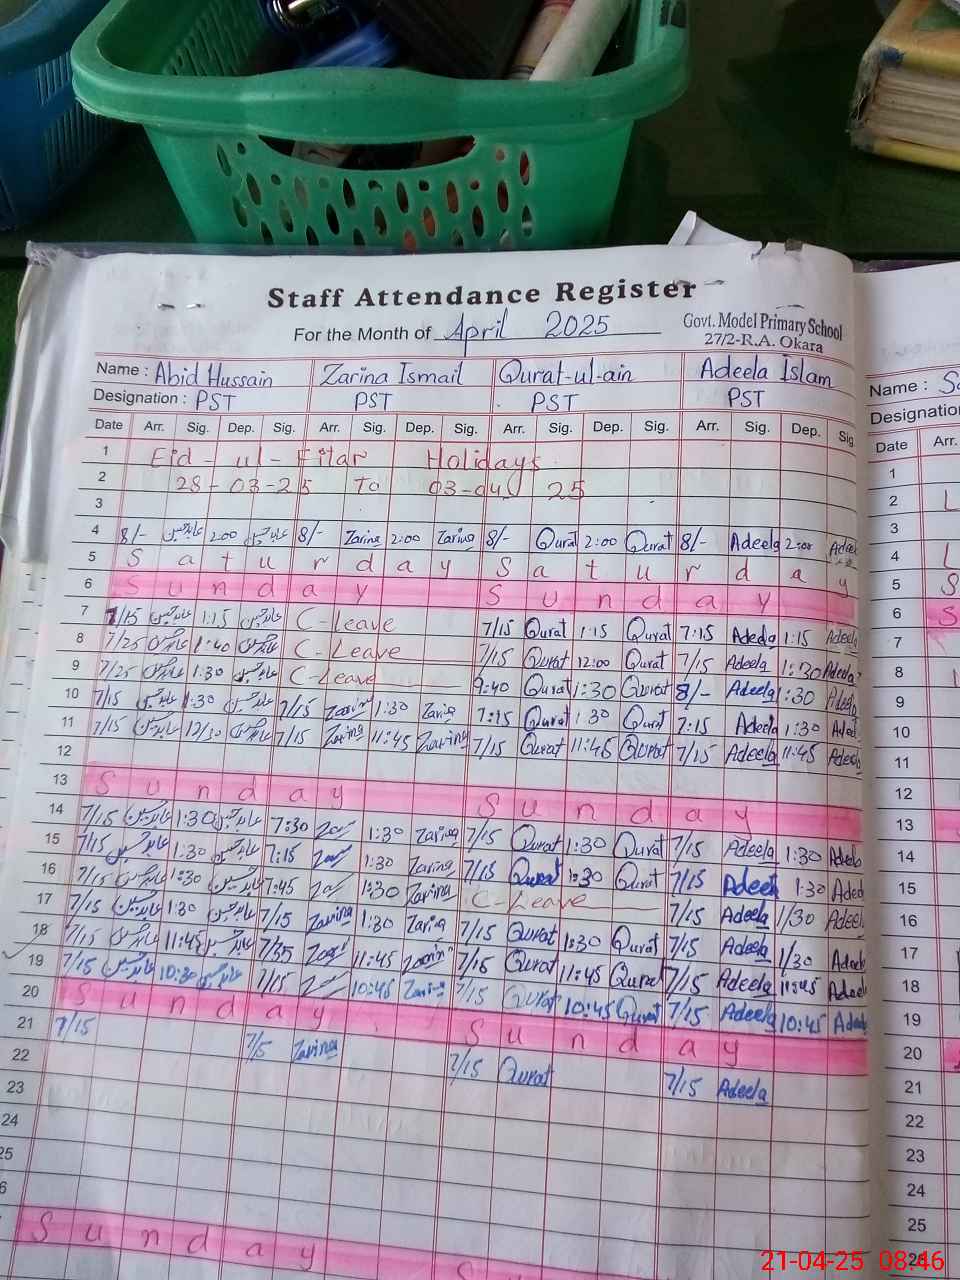 Staff Attendance Register
For the Month of April 2025
Govt. Model Primary School
27/2-R.A. Okara
Name : Abid Hussain Zarina Ismail Qurat-ul-ain Adeela Islam
Designation : PST PST PST PST
Date Arr. Sig. Dep. Sig. Arr. Sig. Dep. Sig. Arr. Sig. Dep. Sig. Arr. Sig. Dep. Sig.
1 Eid-ul-Fitar Holidays
2 28-03-25 To 03-04-25
3
4 8/- عابد حسین 2:00 عابد حسین 8/- Zarina 2:00 Zarina 8/- Qurat 2:00 Qurat 8/- Adeela 2:00 Adeel
5 Saturday Saturday
6 Sunday Sunday
7 7/15 عابد حسین 1:15 عابد حسین C-Leave 7/15 Qurat 1:15 Qurat 7:15 Adeela 1:15 Adeela
8 7/25 عابد حسین 1:40 عابد حسین C-Leave 7/15 Qurat 12:00 Qurat 7/15 Adeela 1:30 Adeela
9 7/25 عابد حسین 1:30 عابد حسین C-Leave 9:40 Qurat 1:30 Qurat 8/- Adeela 1:30 Adeela
10 7/15 عابد حسین 1:30 عابد حسین 7/15 Zarina 1:30 Zarina 7:15 Qurat 1:30 Qurat 7:15 Adeela 1:30 Adeel
11 7/15 عابد حسین 12/30 عابد حسین 7/15 Zarina 11:45 Zarina 7/15 Qurat 11:45 Qurat 7/15 Adeela 11:45 Adeela
12
13 Sunday Sunday
14 7/15 عابد حسین 1:30 عابد حسین 7:30 Zar 1:30 Zarina 7/15 Qurat 1:30 Qurat 7/15 Adeela 1:30 Adeela
15 7/15 عابد حسین 1:30 عابد حسین 7:15 1:30 Zarina 7/15 Qurat 1:30 Qurat 7/15 Adeela 1:30 Adeel
16 7/15 عابد حسین 1:30 عابد حسین 7:45 1:30 Zarina C-Leave 7/15 Adeela 1/30 Adeela
17 7/15 عابد حسین 1:30 عابد حسین 7/15 Zarina 1:30 Zarina 7/15 Qurat 1:30 Qurat 7/15 Adeela 1/30 Adeela
18 7/15 عابد حسین 11:45 عابد حسین 7/35 11:45 Zarina 7/15 Qurat 11:45 Qurat 7/15 Adeela 11:45 Adeela
19 7/15 عابد حسین 10:30 عابد حسین 7/15 10:45 Zarina 7/15 Qurat 10:45 Qurat 7/15 Adeela 10:45 Adeela
20 Sunday Sunday
21 7/15 7/15 Zarina 7/15 Qurat 7/15 Adeela
22
23
24
25
6
Sunday S
Name : Sa
Designation
Date Arr.
1
2 L
3
4 L
5 S
6 S
7
8
9
10
11
12
13
14
15
16
17
18
19
20
21
22
23
24
25
26
21-04-25 08:46